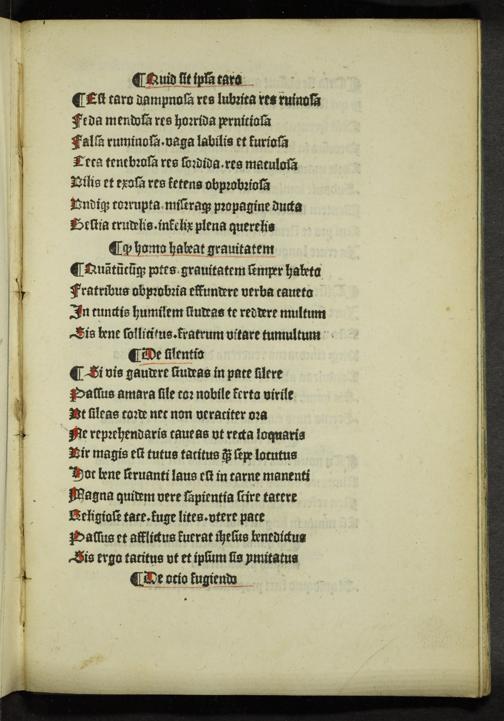 ¶Quid sit ipsa caro
¶Est caro dampnosa res lubrica res ruinosa
Feda mendosa res horrida perniciosa
Falsa ruminosa.vaga labilis et furiosa
Ceca tenebrosa res sordida.res maculosa
Vilis et exosa res fetens obprobriosa
Vndiqꝫ corrupta.miseraqꝫ propagine ducta
Bestia crudelis.infelix plena querelis
¶ꝙ homo habeat grauitatem
¶Quātūcūqꝫ potes.grauitatem semper habeto
Fratribus obprobria effundere verba caueto
In cunctis humilem studeas te reddere multum
Sis bene sollicitus.fratrum vitare tumultum
¶De silentio
¶Si vis gaudere studeas in pace silere
Passus amara sile cor nobile ferto virile
Vt sileas corde nec non veraciter ora
Ne reprehendaris caueas vt recta loquaris
Vir magis est tutus tacitus qᷓꝫ sepe locutus
Hoc bene seruanti laus est in carne manenti
Magna quidem vere sapientia scire tacere
Religiose tace.fuge lites.vtere pace
Passus et afflictus fuerat ihesus benedictus
Sis ergo tacitus vt et ipsum sis ymitatus
¶De ocio fugiendo